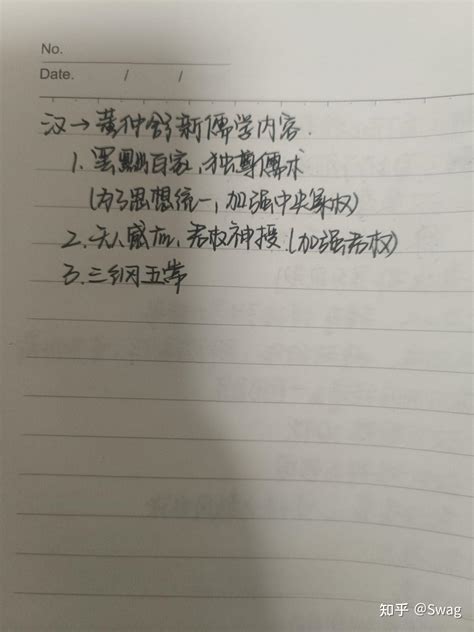 No.
Date. / /
汉→董仲舒新儒学内容.
1. 罢黜百家,独尊儒术
(为了思想统一,加强中央集权)
2. 天人感应,君权神授.(加强君权)
3. 三纲五常
知乎 @Swag